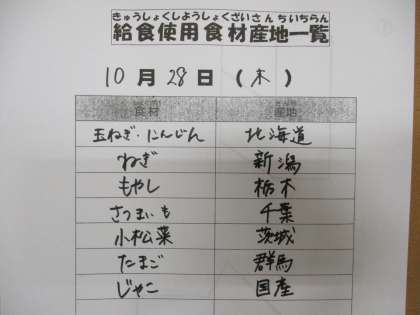 きゅうしょくしようしょくざいさんちいちらん
給食使用食材産地一覧
10月28日(木)
食材 産地
玉ねぎ・にんじん 北海道
ねぎ 新潟
もやし 栃木
さつまいも 千葉
小松菜 茨城
たまご 群馬
じゃこ 国産